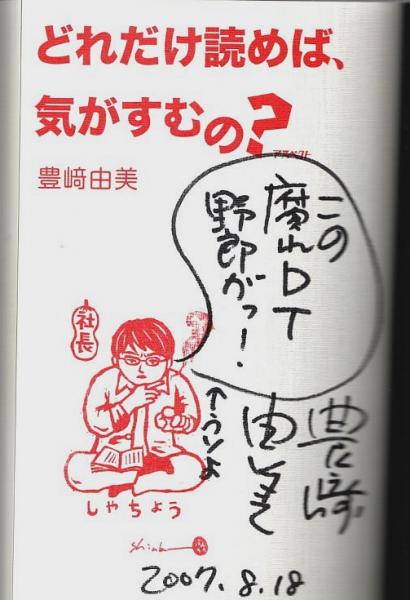 どれだけ読めば、
気がすむの?
アスペクト
豊﨑由美
この
腐れDT
野郎がっ!
社長
↑ウソよ
豊﨑
由美
しゃちょう
2007.8.18